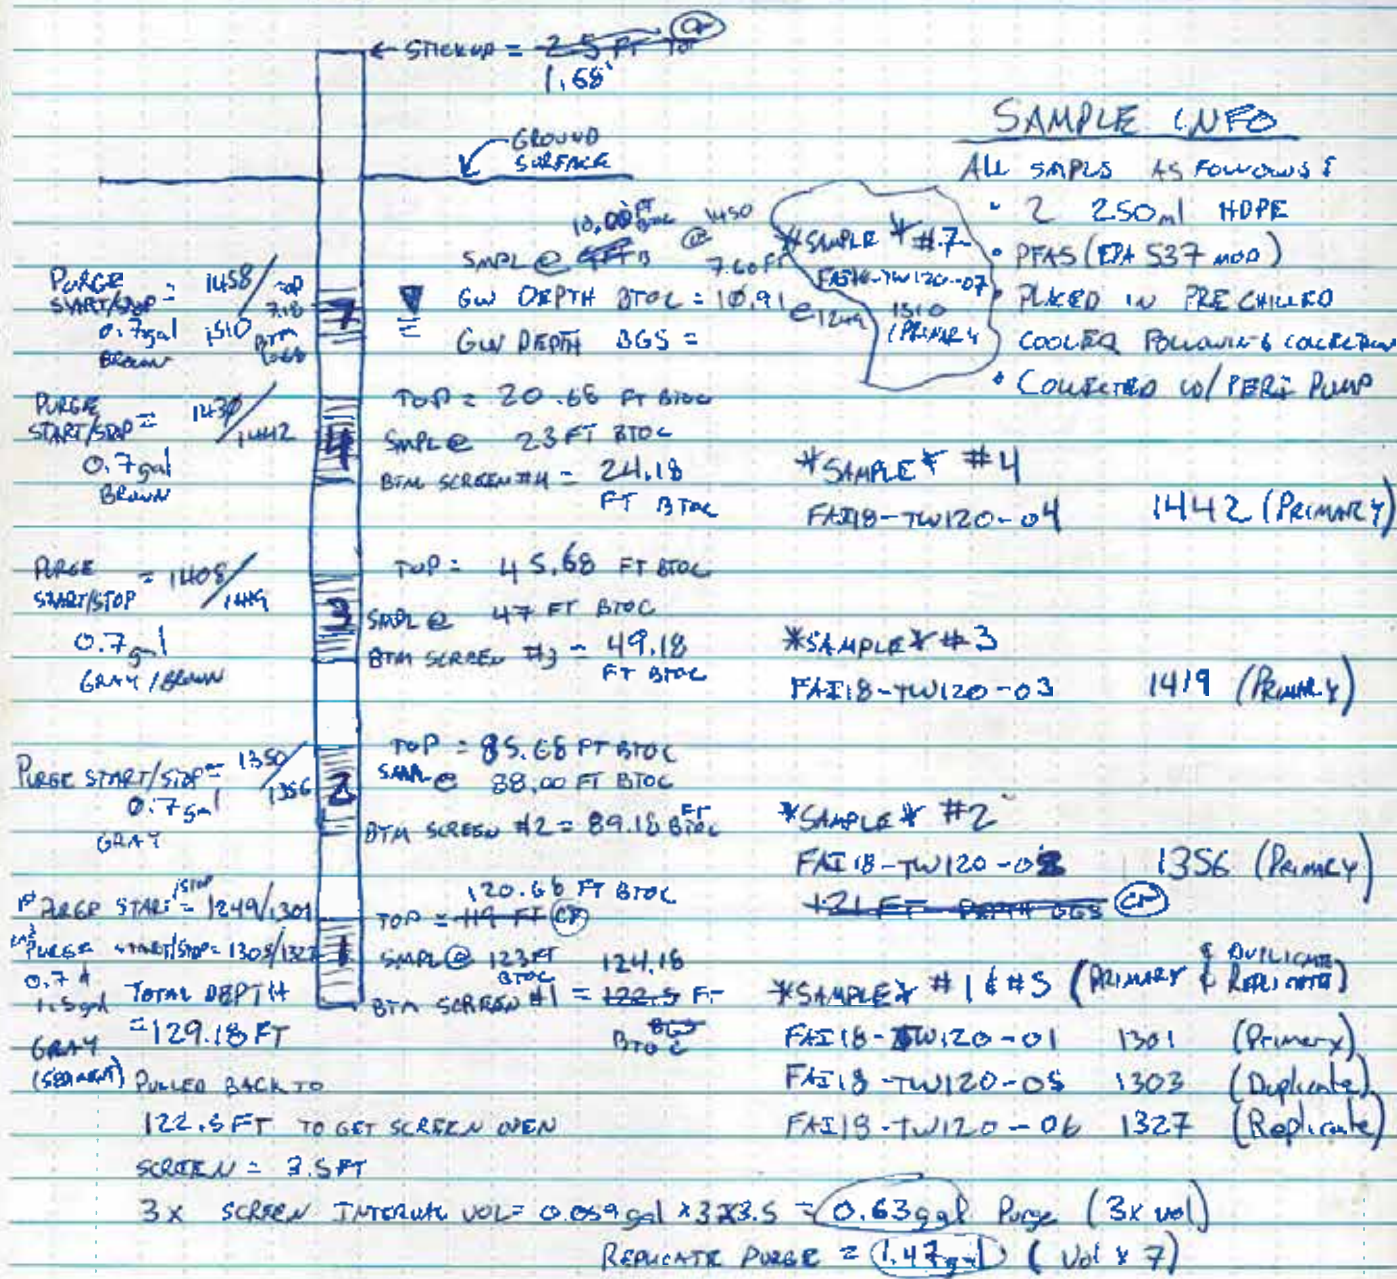 ← STICKUP = 2.5 FT
1.68'
GROUND
SURFACE
SAMPLE INFO
ALL SMPLS AS FOLLOWS:
• 2 250ml HDPE
• PFAS (EPA 537 MOD)
• PLACED IN PRE CHILLED
COOLER FOLLOWING COLLECTION
• COLLECTED W/ PERI PUMP
PURGE
START/STOP = 1458/
1510
0.7gal
BROWN
7.18
BTM
BGS
7
10.00 FT BTOC
SMPL @
@ 1450
7.60 FT
GW DEPTH BTOC = 10.91
@ 1249
GW DEPTH BGS =
*SAMPLE* #7
FAI18-TW120-07
1510
(PRIMARY)
PURGE
START/STOP = 1430/
1442
0.7gal
BROWN
4
TOP = 20.68 FT BTOC
SMPL @ 23 FT BTOC
BTM SCREEN #4 = 24.18
FT BTOC
*SAMPLE* #4
FAI18-TW120-04 1442 (PRIMARY)
PURGE
START/STOP = 1408/
1419
0.7gal
GRAY/BROWN
3
TOP = 45.68 FT BTOC
SMPL @ 47 FT BTOC
BTM SCREEN #3 = 49.18
FT BTOC
*SAMPLE* #3
FAI18-TW120-03 1419 (PRIMARY)
PURGE START/STOP = 1350/
1356
0.7gal
GRAY
2
TOP = 85.68 FT BTOC
SMPL @ 88.00 FT BTOC
BTM SCREEN #2 = 89.18 FT BTOC
*SAMPLE* #2
FAI18-TW120-02 1356 (PRIMARY)
121 FT DEPTH BGS CP
1st PURGE START/STOP = 1249/1301
2nd PURGE START/STOP = 1305/1327
0.7 &
1.5gal
GRAY
(SEDIMENT)
1
120.68 FT BTOC
TOP = 119 FT CP
SMPL @ 123 FT
BTOC
124.18
BTM SCREEN #1 = 122.5 FT
BGS
BTOC
TOTAL DEPTH
= 129.18 FT
PULLED BACK TO
122.5 FT TO GET SCREEN OPEN
SCREEN = 3.5 FT
*SAMPLE* #1 & #5 (PRIMARY & DUPLICATE & REPLICATE)
FAI18-TW120-01 1301 (Primary)
FAI18-TW120-05 1303 (Duplicate)
FAI18-TW120-06 1327 (Replicate)
3 x SCREEN INTERVAL VOL = 0.059 gal x 3 x 3.5 = 0.63gal Purge (3x vol)
REPLICATE PURGE = 1.47gal (Vol x 7)